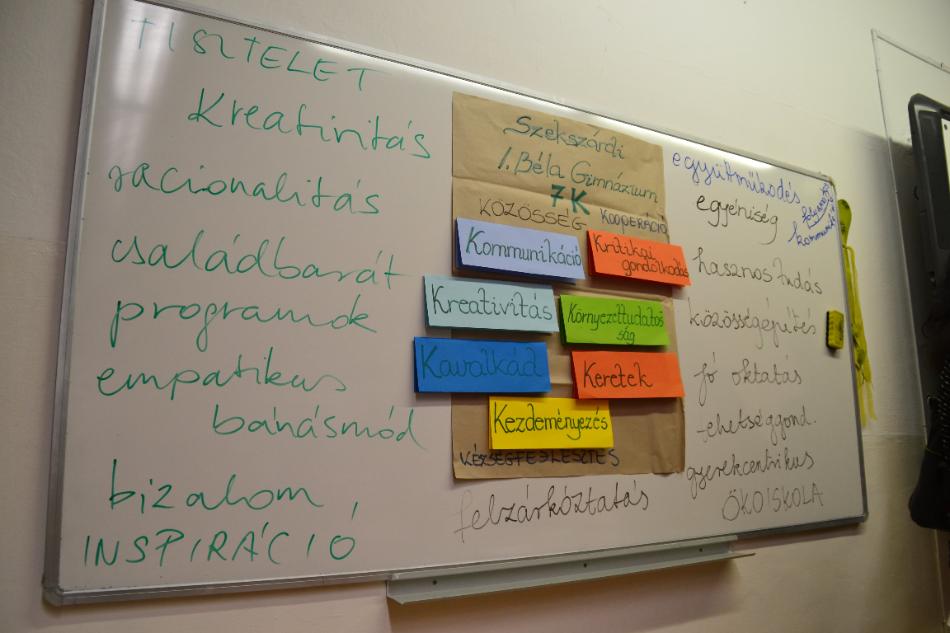 TISZTELET
Kreativitás
racionalitás
családbarát
programok
empatikus
bánásmód
bizalom,
INSPIRÁCIÓ
Szekszárdi
I. Béla Gimnázium
7K
KÖZÖSSÉG KOOPERÁCIÓ
Kommunikáció
Kritikai
gondolkodás
Kreativitás
Környezettudatos
ság
Kavalkád
Keretek
Kezdeményezés
KÉSZSÉGFEJLESZTÉS
felzárkóztatás
együttműködés
egyéniség
hasznos tudás
közösségépítés
jó oktatás
tehetséggond.
gyerekcentrikus
ÖKOISKOLA